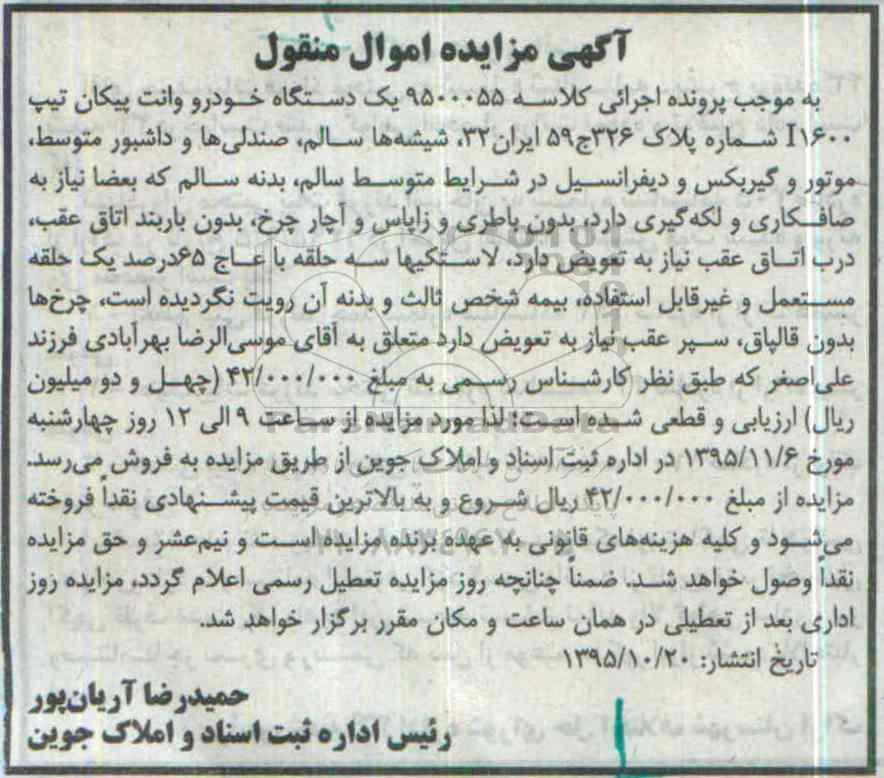 آگهی مزایده اموال منقول
به موجب پرونده اجرائی کلاسه ۹۵۰۰۰۵۵ یک دستگاه خودرو وانت پیکان تیپ
I۱۶۰۰ شماره پلاک ۳۲۶ج۵۹ ایران۳۲، شیشه‌ها سالم، صندلی‌ها و داشبور متوسط،
موتور و گیربکس و دیفرانسیل در شرایط متوسط سالم، بدنه سالم که بعضا نیاز به
صافکاری و لکه‌گیری دارد، بدون باطری و زاپاس و آچار چرخ، بدون باربند اتاق عقب،
درب اتاق عقب نیاز به تعویض دارد، لاستکیها سه حلقه با عاج ۶۵درصد یک حلقه
مستعمل و غیرقابل استفاده، بیمه شخص ثالث و بدنه آن رویت نگردیده است، چرخ‌ها
بدون قالپاق، سپر عقب نیاز به تعویض دارد متعلق به آقای موسی‌الرضا بهرآبادی فرزند
علی‌اصغر که طبق نظر کارشناس رسمی به مبلغ ۴۲/۰۰۰/۰۰۰ (چهل و دو میلیون
ریال) ارزیابی و قطعی شده است؛ لذا مورد مزایده از ساعت ۹ الی ۱۲ روز چهارشنبه
مورخ ۱۳۹۵/۱۱/۶ در اداره ثبت اسناد و املاک جوین از طریق مزایده به فروش می‌رسد.
مزایده از مبلغ ۴۲/۰۰۰/۰۰۰ ریال شروع و به بالاترین قیمت پیشنهادی نقداً فروخته
می‌شود و کلیه هزینه‌های قانونی به عهده برنده مزایده است و نیم‌عشر و حق مزایده
نقداً وصول خواهد شد. ضمناً چنانچه روز مزایده تعطیل رسمی اعلام گردد، مزایده روز
اداری بعد از تعطیلی در همان ساعت و مکان مقرر برگزار خواهد شد.
تاریخ انتشار: ۱۳۹۵/۱۰/۲۰
حمیدرضا آریان‌پور
رئیس اداره ثبت اسناد و املاک جوین